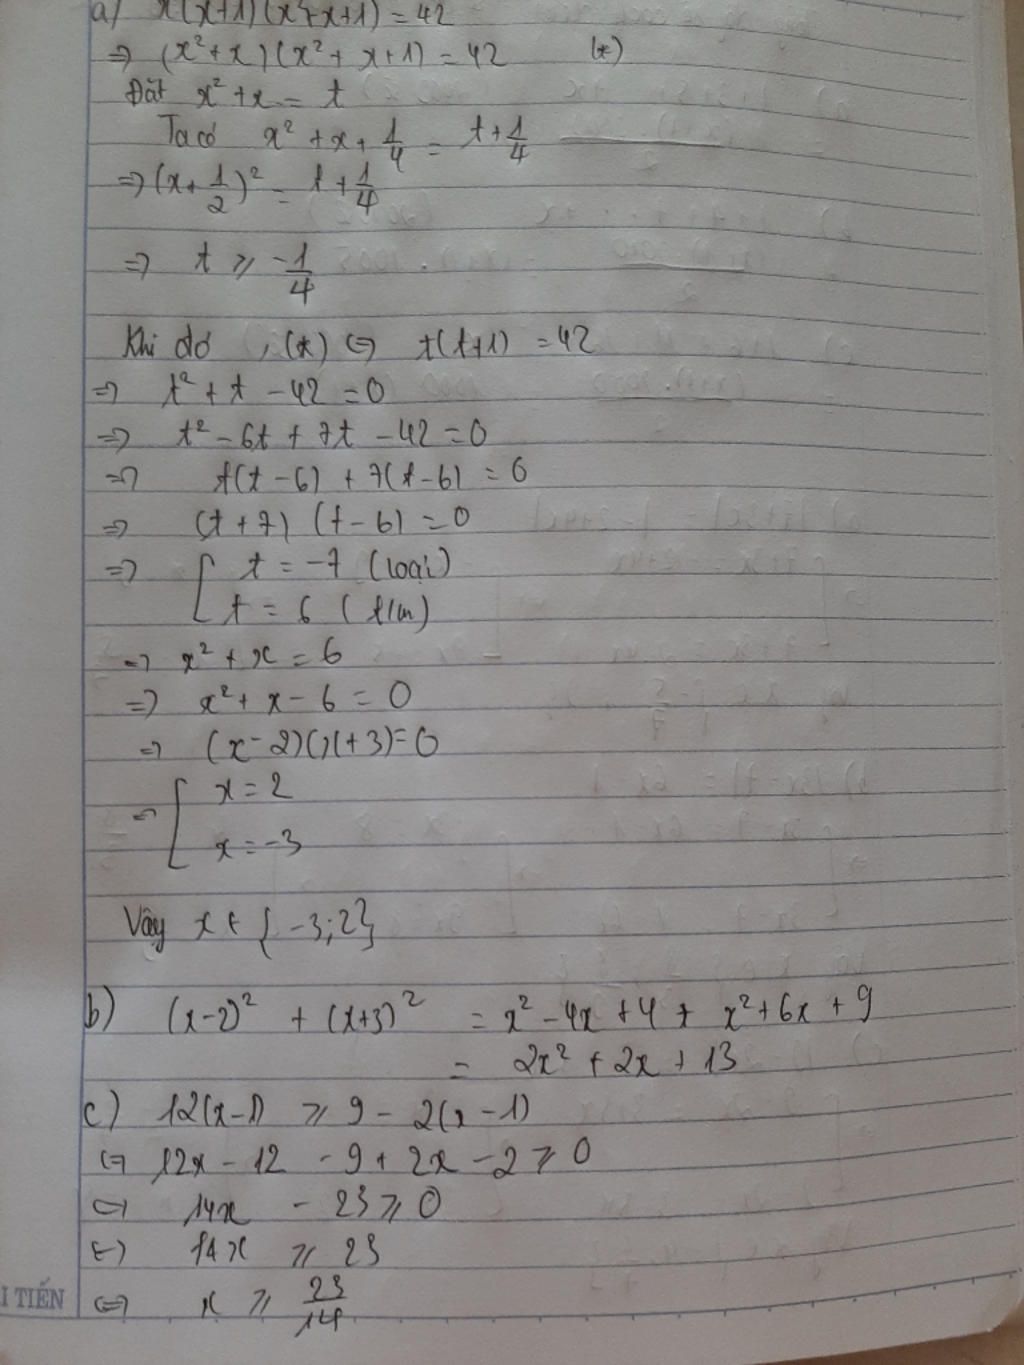 a) x(x+1)(x²+x+1) = 42
⇒ (x²+x)(x²+x+1) = 42 (*)
Đặt x²+x = t
Ta có x² + x + 1/4 = t + 1/4
⇒ (x + 1/2)² = t + 1/4
⇒ t ⩾ -1/4
Khi đó , (*) ⇔ t(t+1) = 42
⇒ t² + t - 42 = 0
⇒ t² - 6t + 7t - 42 = 0
⇒ t(t-6) + 7(t-6) = 0
⇒ (t+7) (t-6) = 0
⇒ [ t = -7 (loại)
t = 6 (t/m)
⇒ x² + x = 6
⇒ x² + x - 6 = 0
⇒ (x-2)(x+3) = 0
⇒ [ x = 2
x = -3
Vậy x ∈ {-3;2}
b) (x-2)² + (x+3)² = x² - 4x + 4 + x² + 6x + 9
= 2x² + 2x + 13
c) 12(x-1) ⩾ 9 - 2(x-1)
⇔ 12x - 12 - 9 + 2x - 2 ⩾ 0
⇔ 14x - 23 ⩾ 0
⇔ 14x ⩾ 23
⇔ x ⩾ 23/14
I TIẾN